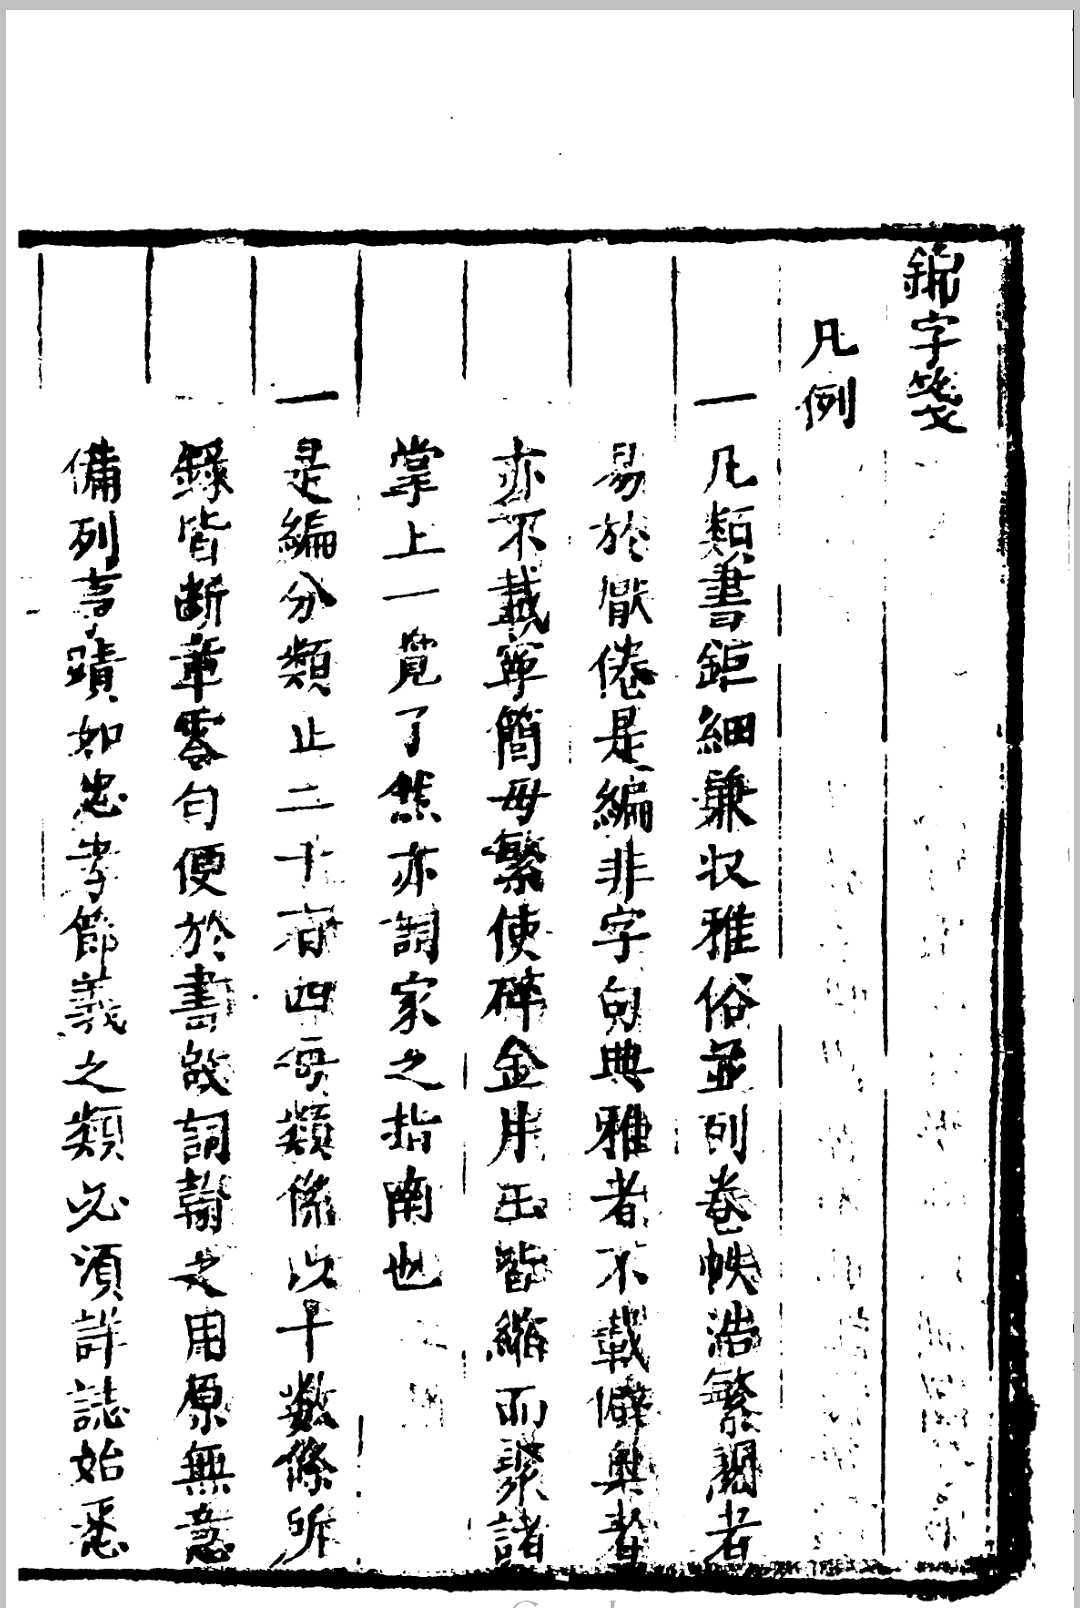 錦字箋
凡例
一凡類書鉅細兼收雅俗並列卷帙浩繁閱者
易於厭倦是編非字句典雅者不載僻奧者
亦不載寧簡毋繁使碎金片玉皆縮而聚諸
掌上一覽了然亦詞家之指南也
一是編分類止二十有四每類條以十數條所
錄皆斷章零句便於書啟詞翰之用原無意
備列事蹟如忠孝節義之類必須詳誌始悉